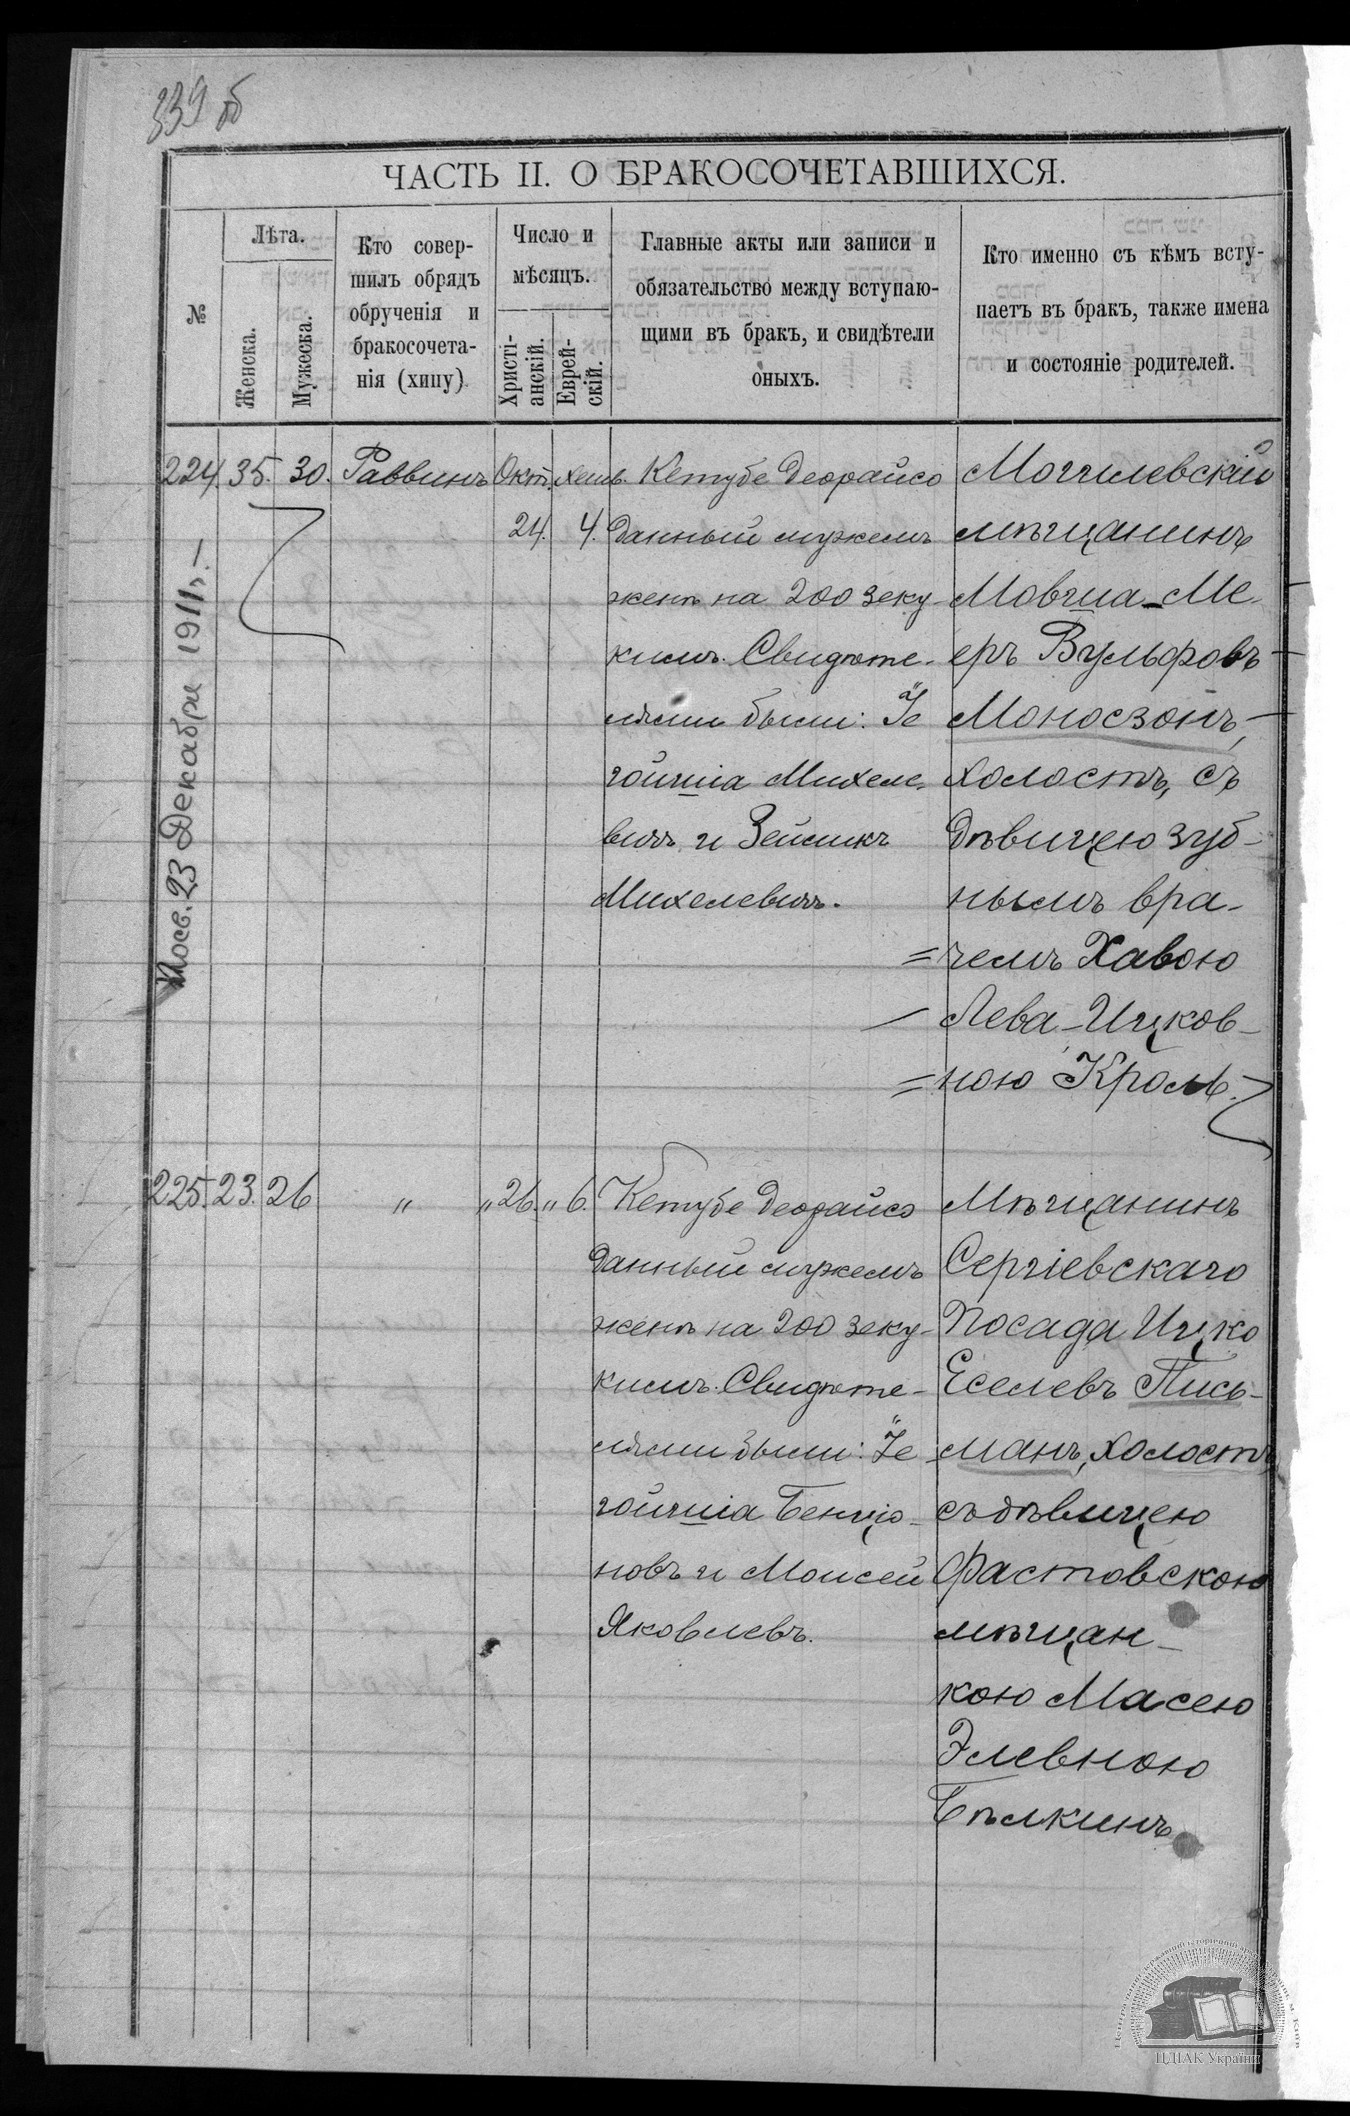 339 об
ЧАСТЬ II. О БРАКОСОЧЕТАВШИХСЯ.
№
Лѣта.
Женска.
Мужеска.
Кто совер-
шилъ обрядъ
обрученія и
бракосочета-
нія (хипу)
Число и
мѣсяцъ.
Христі-
анскій.
Еврей-
скій.
Главные акты или записи и
обязательство между вступаю-
щими въ бракъ, и свидѣтели
оныхъ.
Кто именно съ кѣмъ всту-
паетъ въ бракъ, также имена
и состояніе родителей.
224. 35. 30. Раввинъ Окт. хешв.
24. 4.
Кетубе Деорайсо
данный мужемъ
женѣ на 200 зеку-
кимъ. Свидѣте-
лями были: Іе
гойшіа Михеле-
вичъ и Зейликъ
Михелевичъ.
Могилевскій
мѣщанинъ
Мовша-Ме-
еръ Вульфовъ
Моносзонъ,
холостъ, съ
дѣвицею зуб-
нымъ вра-
=чемъ Хавою
Лева-Ицков-
=ною Кроль.
Посв. 23 Декабря 1911 г.
225. 23. 26 „ „ 26. „ 6.
Кетубе Деорайсо
данный мужемъ
женѣ на 200 зеку-
кимъ. Свидѣте-
лями были: Іе
гойшіа Бенціо-
новъ и Моисей
Яковлевъ.
Мѣщанинъ
Сергіевскаго
Посада Ицко
Еселевъ Пись-
манъ, холостъ
съ дѣвицею
Фастовскою
мѣщан-
кою Масею
Элевною
Бѣлкинъ
ЦДІАК України